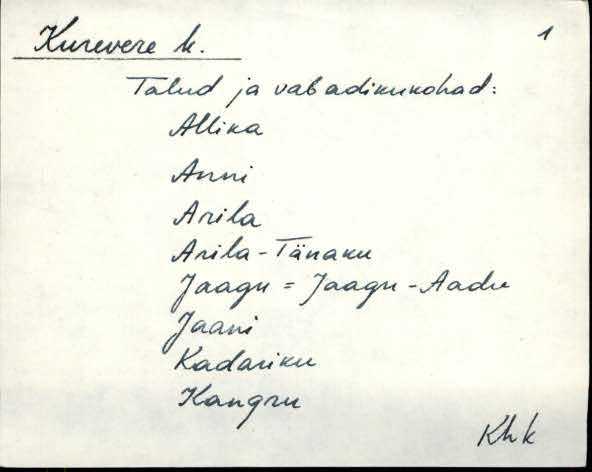 Kurevere k. 1
Talud ja vabadikukohad:
Allika
Anni
Arila
Arila-Tänaku
Jaagu = Jaagu-Aadu
Jaani
Kadariku
Kangru
Khk